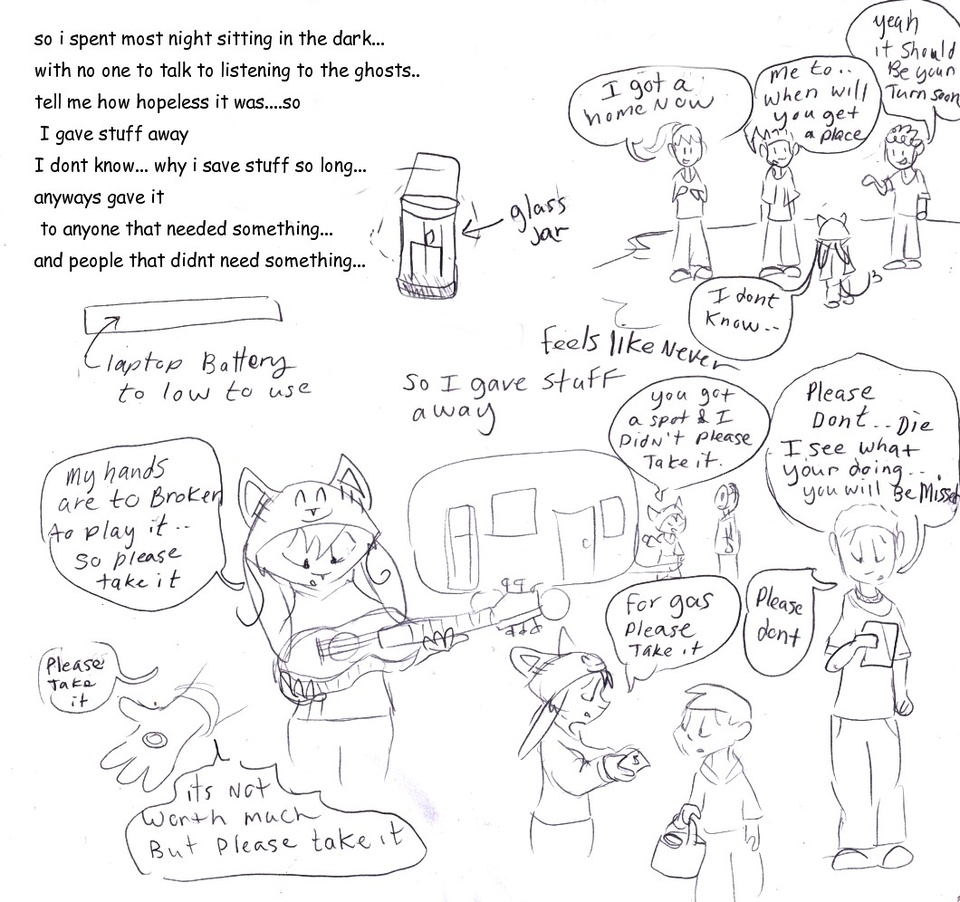 so i spent most night sitting in the dark...
with no one to talk to listening to the ghosts..
tell me how hopeless it was....so
I gave stuff away
I dont know... why i save stuff so long...
anyways gave it
to anyone that needed something...
and people that didnt need something...
glass
jar
I got a
home Now
me to..
when will
you get
a place
yeah
it Should
Be your
Turn soon
I dont
Know--
Feels like Never
laptop Battery
to low to use
So I gave stuff
away
you got
a spot & I
Didn't please
Take it.
Please
Dont...Die
I see what
your doing...
you will Be Missed
My hands
are to Broken
to play it...
So please
take it
For gas
Please
Take it
Please
dont
Please
Take
it
its Not
worth much
But please take it